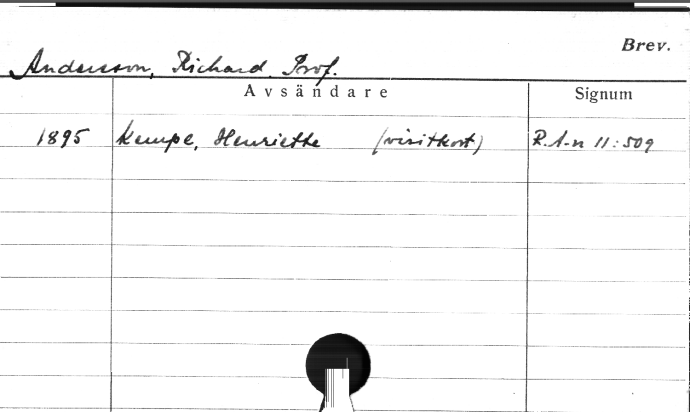 Brev.
Andersson, Richard. Prof.
Avsändare Signum
1895 Kempe, Henriette (visitkort) R.A-n 11:509